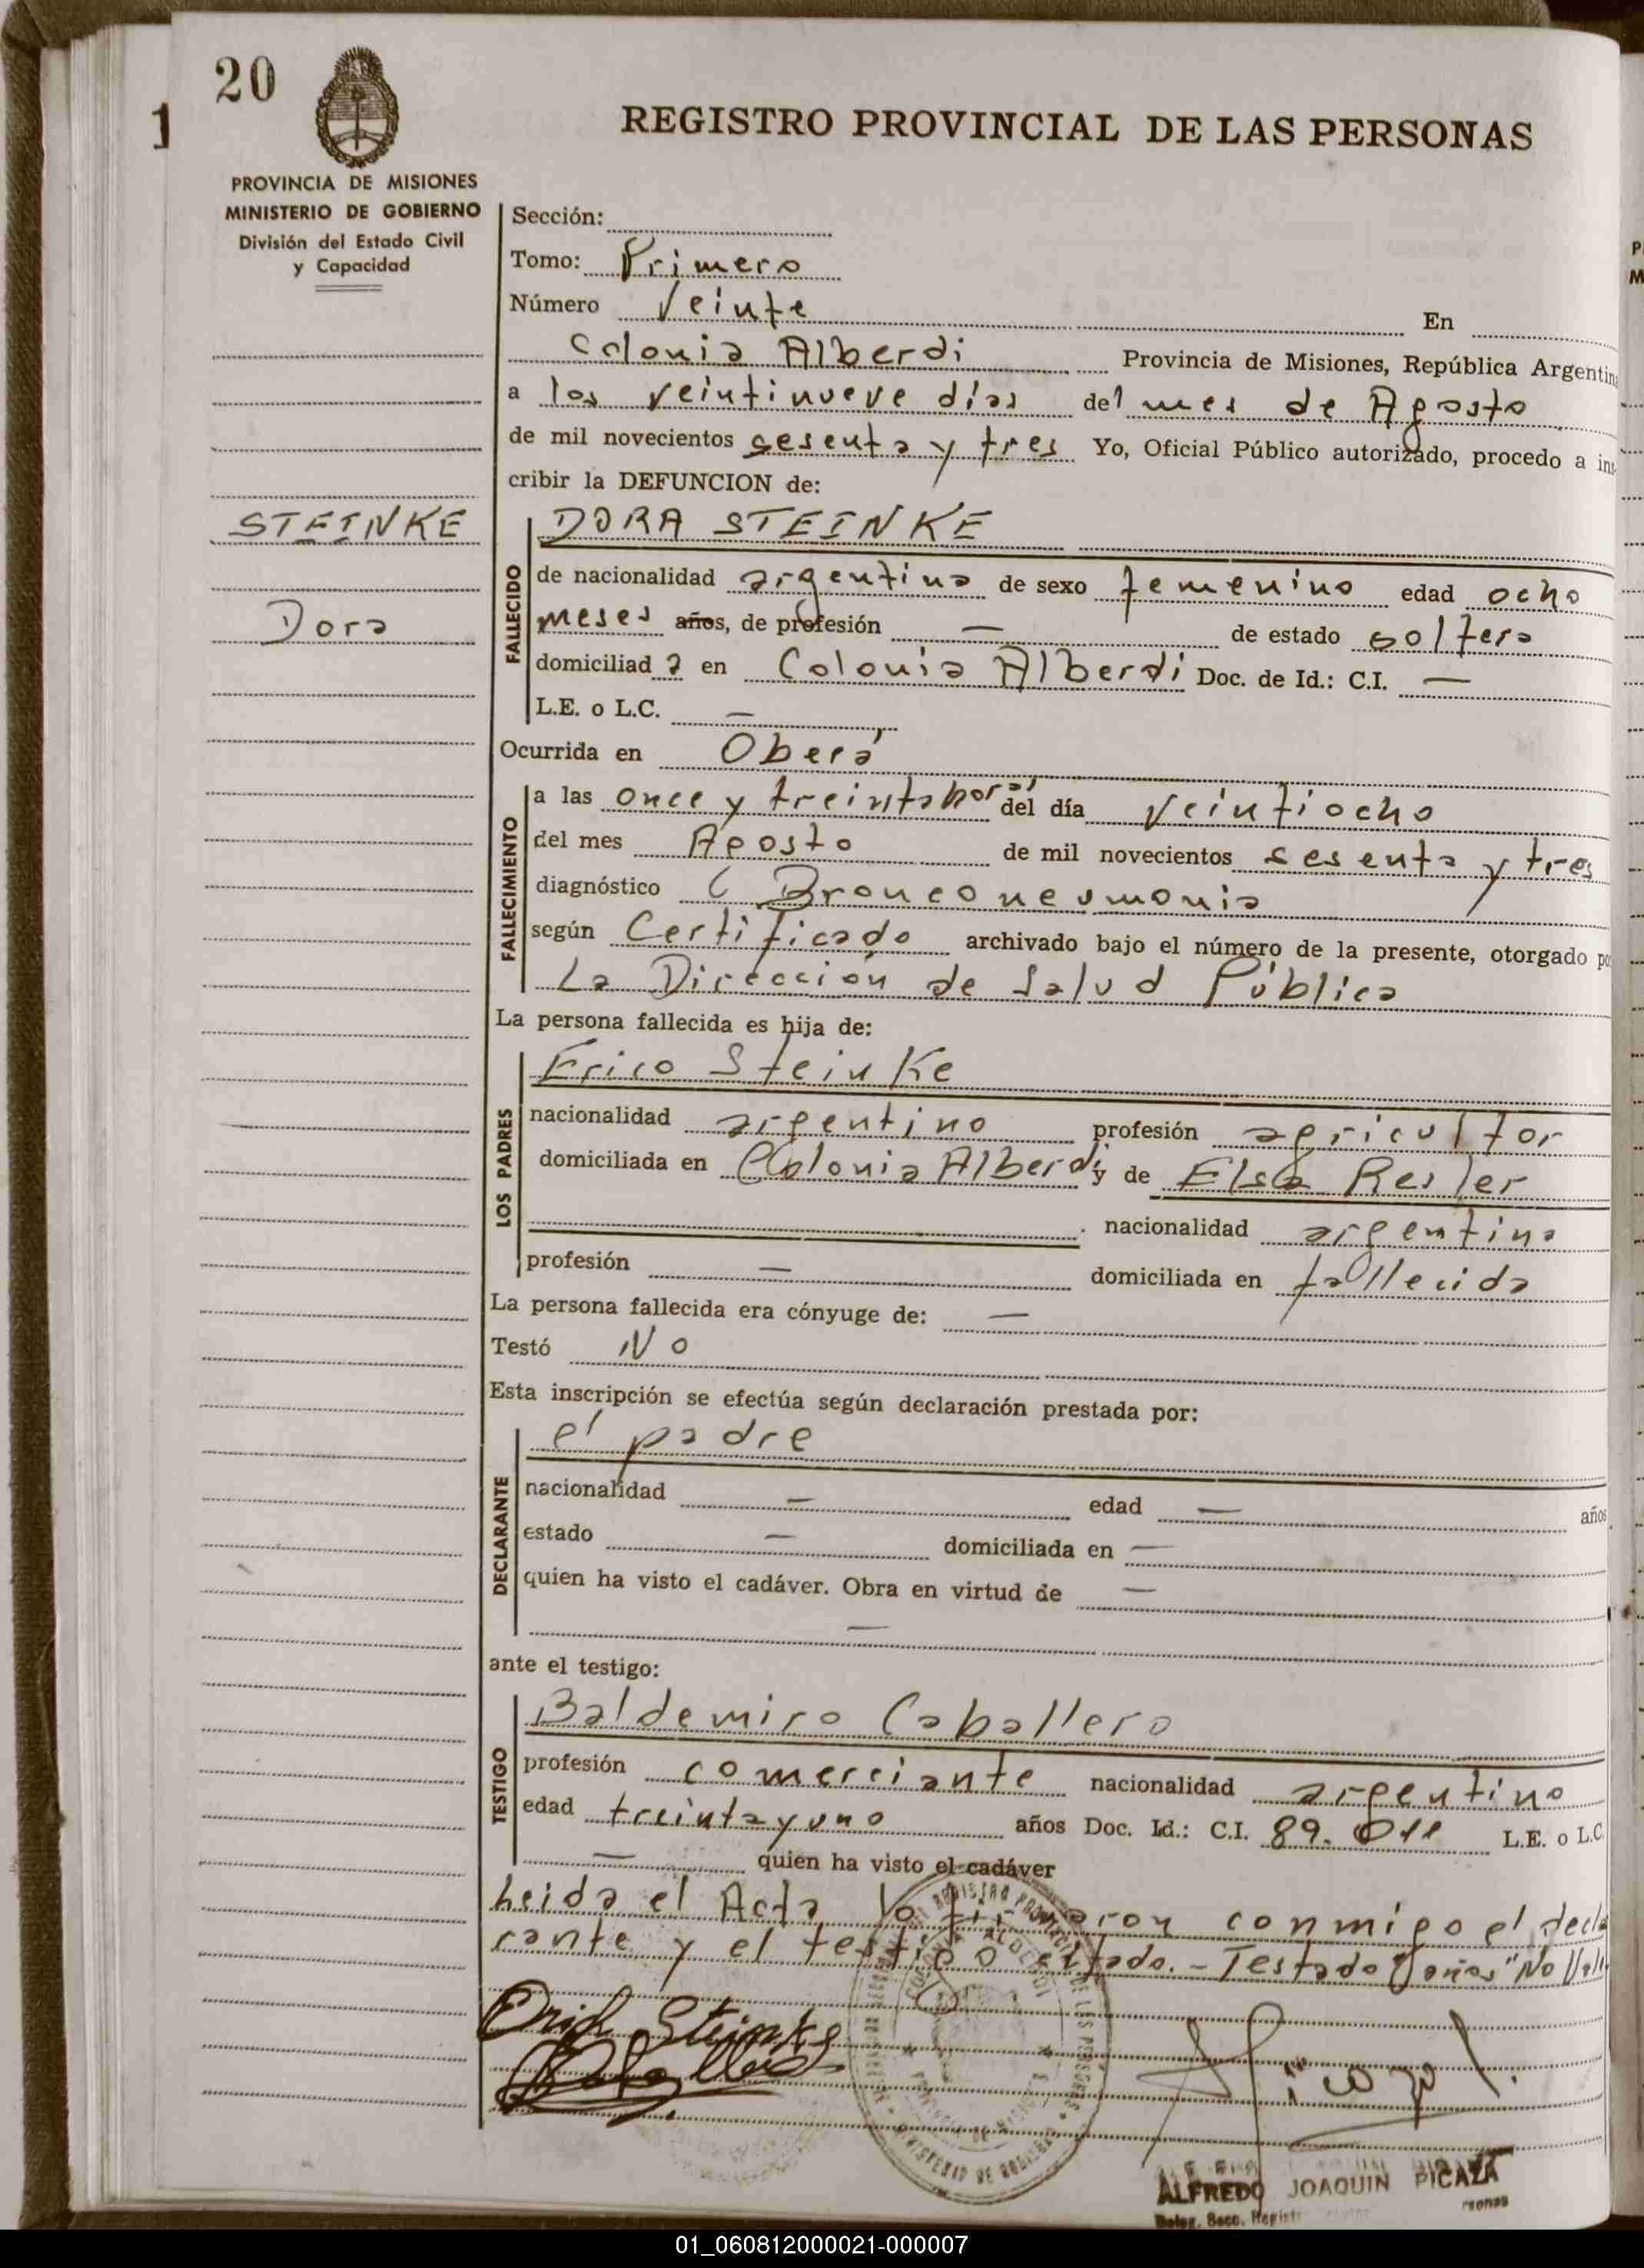 20
1
REGISTRO PROVINCIAL DE LAS PERSONAS
PROVINCIA DE MISIONES
MINISTERIO DE GOBIERNO
División del Estado Civil
y Capacidad
Sección:
Tomo: Primero
Número Veinte En
Colonia Alberdi Provincia de Misiones, República Argentin
a los veintinueve días del mes de Agosto
de mil novecientos sesenta y tres Yo, Oficial Público autorizado, procedo a ins
cribir la DEFUNCION de:
STEINKE
Dora
FALLECIDO
DORA STEINKE
de nacionalidad argentina de sexo femenino edad ocho
meses años, de profesión — de estado soltera
domiciliad a en Colonia Alberdi Doc. de Id.: C.I. —
L.E. o L.C. —
Ocurrida en Oberá
FALLECIMIENTO
a las once y treinta horas del día veintiocho
del mes Agosto de mil novecientos sesenta y tres
diagnóstico Bronconeumonia
según Certificado archivado bajo el número de la presente, otorgado po
La Dirección de Salud Pública
La persona fallecida es hija de:
LOS PADRES
Erico Steinke
nacionalidad argentino profesión agricultor
domiciliada en Colonia Alberdi y de Elsa Resler
nacionalidad argentina
profesión — domiciliada en fallecida
La persona fallecida era cónyuge de: —
Testó No
Esta inscripción se efectúa según declaración prestada por:
DECLARANTE
el padre
nacionalidad — edad — años
estado — domiciliada en —
quien ha visto el cadáver. Obra en virtud de —
—
ante el testigo:
TESTIGO
Baldemiro Caballero
profesión comerciante nacionalidad argentino
edad treinta y uno años Doc. Id.: C.I. 89.011 L.E. o L.C.
— quien ha visto el cadáver
Leida el Acta la firmaron conmigo el decla
rante y el testigo citado. - Testado "años" No Vale
Erich Steinke
ALFREDO JOAQUIN PICAZA
01_060812000021-000007